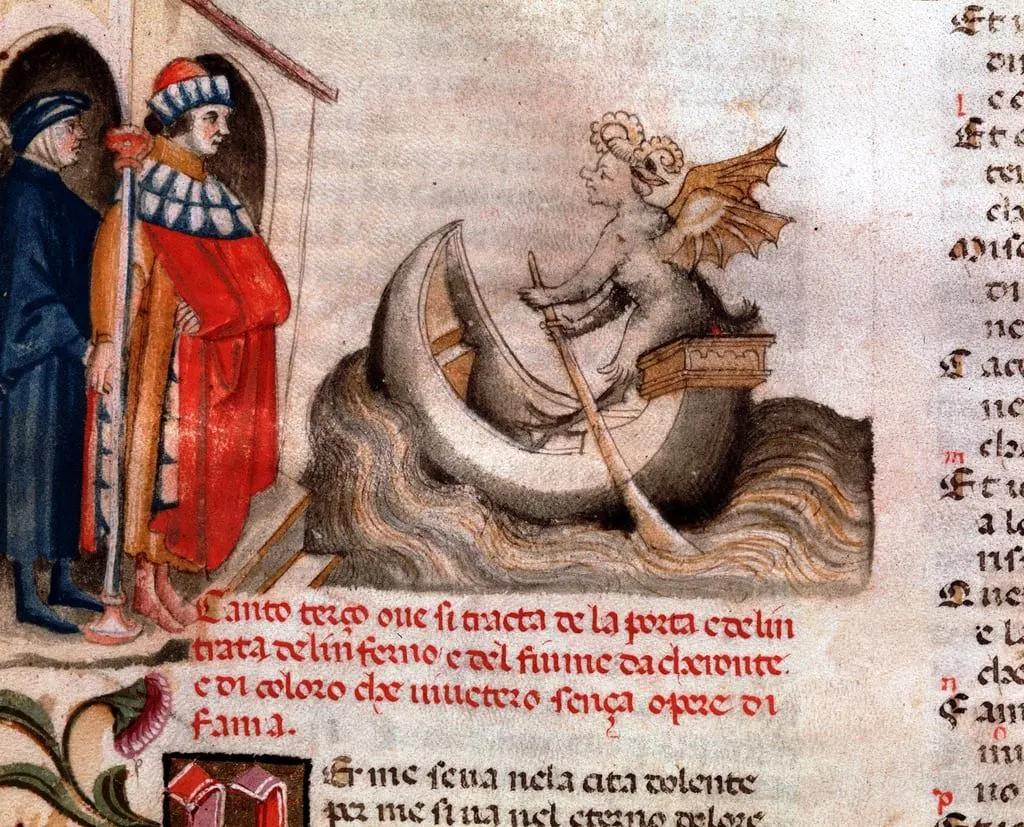 Canto terço oue si tracta de la porta e delin
trata delinferno e del fiume dacheronte.
e di coloro che uiuetero sença opere di
fama.
Er me seua nela cita dolente
per me si ua nel eterno dolore
Et
di
l
Et
ter
che
Misc
di
ne
T acc
ne
m
che
Et
a lo
ris
Que
e la
che
n
F am
o
no
p